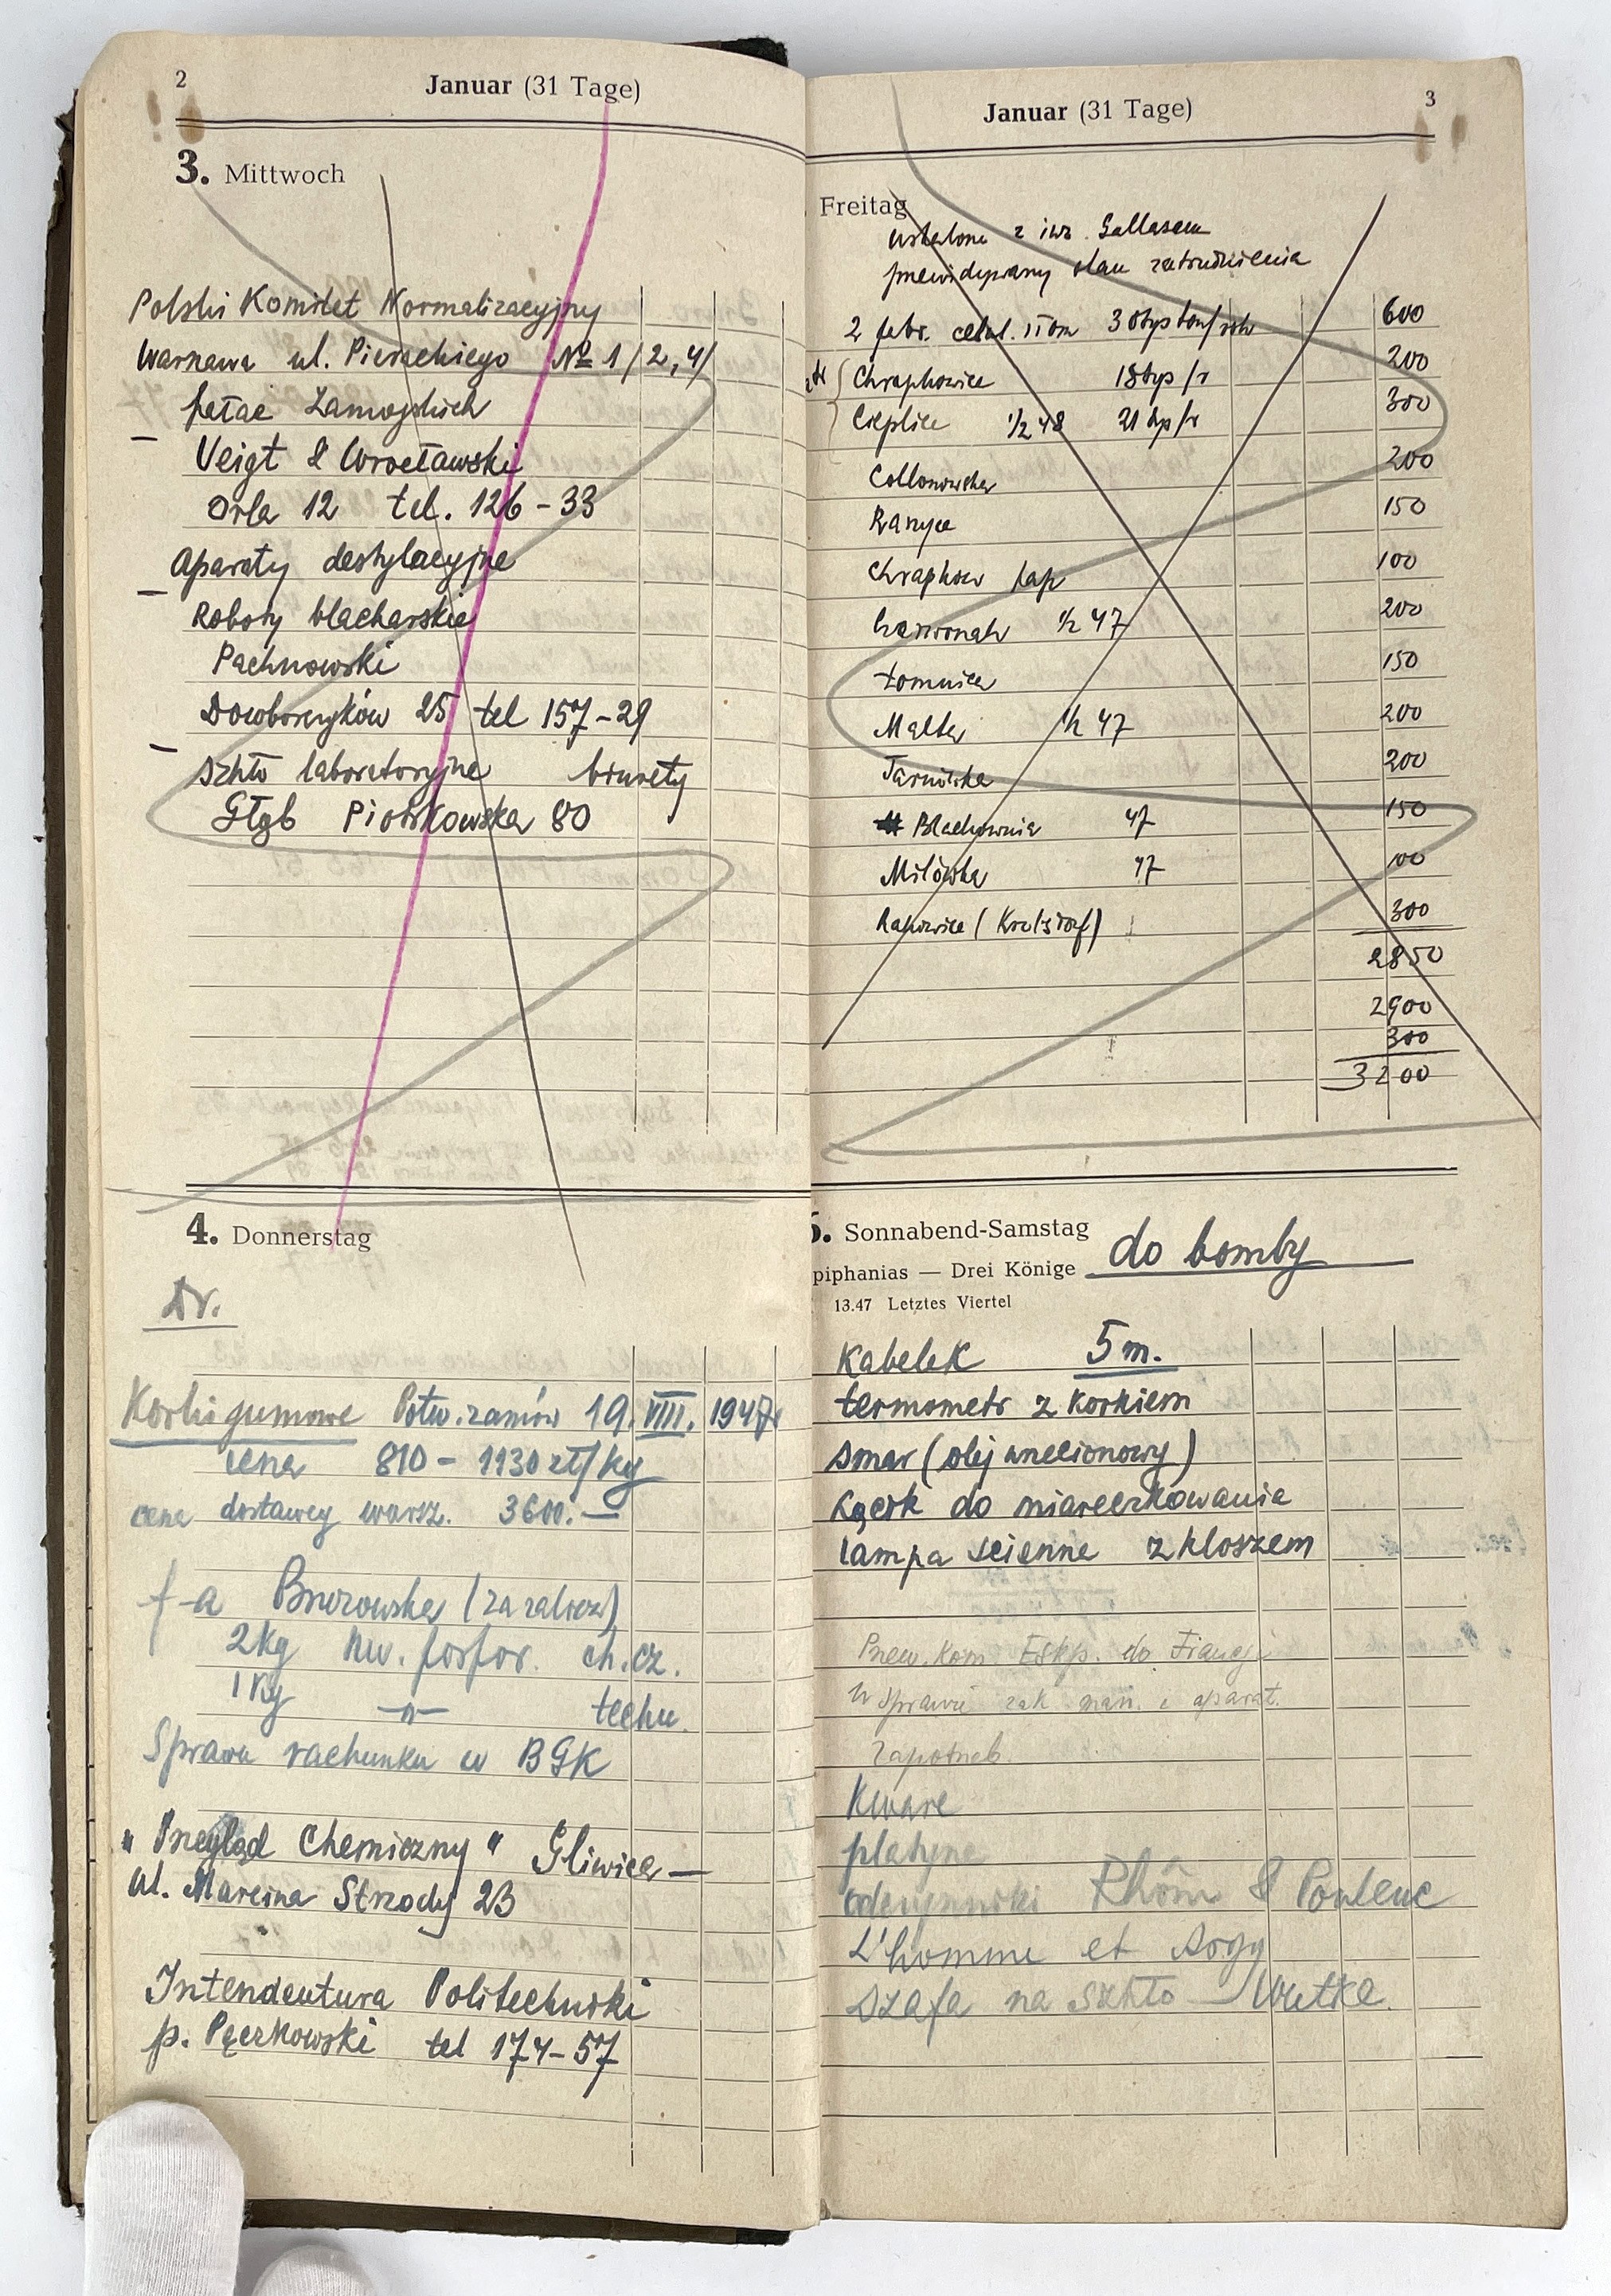 2
Januar (31 Tage)
3. Mittwoch
Polski Komitet Normalizacyjny
Warszawa ul. Pierackiego № 1/2, 4/
pałac Zamoyskich
Veigt & Wrocławski
Orla 12 tel. 126-33
Aparaty destylacyjne
Roboty blacharskie
Pachnowski
Dowborczyków 25 tel 157-29
Szkło laboratoryjne biurety
Głąb Piotrkowska 80
4. Donnerstag
Dr.
Korki gumowe Potw. zamów 19. VIII. 1947r
cena 810 - 1130 zł/kg
cena dostawcy warsz. 3600.-
f-a Burowska (za zalicz)
2kg kw. fosfor. ch. cz.
1 kg -"- techn.
Sprawa rachunku w BGK
"Przegląd Chemiczny" Gliwice —
ul. Marcina Strzody 23
Intendentura Politechniki
p. Pęczkowski tel 174-57
Januar (31 Tage)
3
Freitag
ustalone z inż. Gallasem
przewidywany stan zatrudnienia
2 febr. celul. 30tys ton/rok 600
Chrapkowice 18tys/r 200
Cieplice 1/2 48 21 tys/r 300
Collonowska 200
150
Chrapkow pap 100
1/2 47 200
Łomnica 150
Malta 1/2 47 200
Tarnówka 200
Blachownia 47 150
Milówka 47 100
300
2850
2900
300
3200
6. Sonnabend-Samstag
piphanias — Drei Könige
do bomby
13.47 Letztes Viertel
Kabelek 5 m.
termometr z korkiem
smar (olej wrzecionowy)
Łącik do miareczkowania
lampa ścienna z kloszem
Przew. Kom. Eksp. do Francji
W sprawie zak man. i aparat.
Zapotrzeb.
Kwarc
platyna
odczynniki Rhôm & Poulenc
L'homme et Argy
Szafa na szkło — Wutke